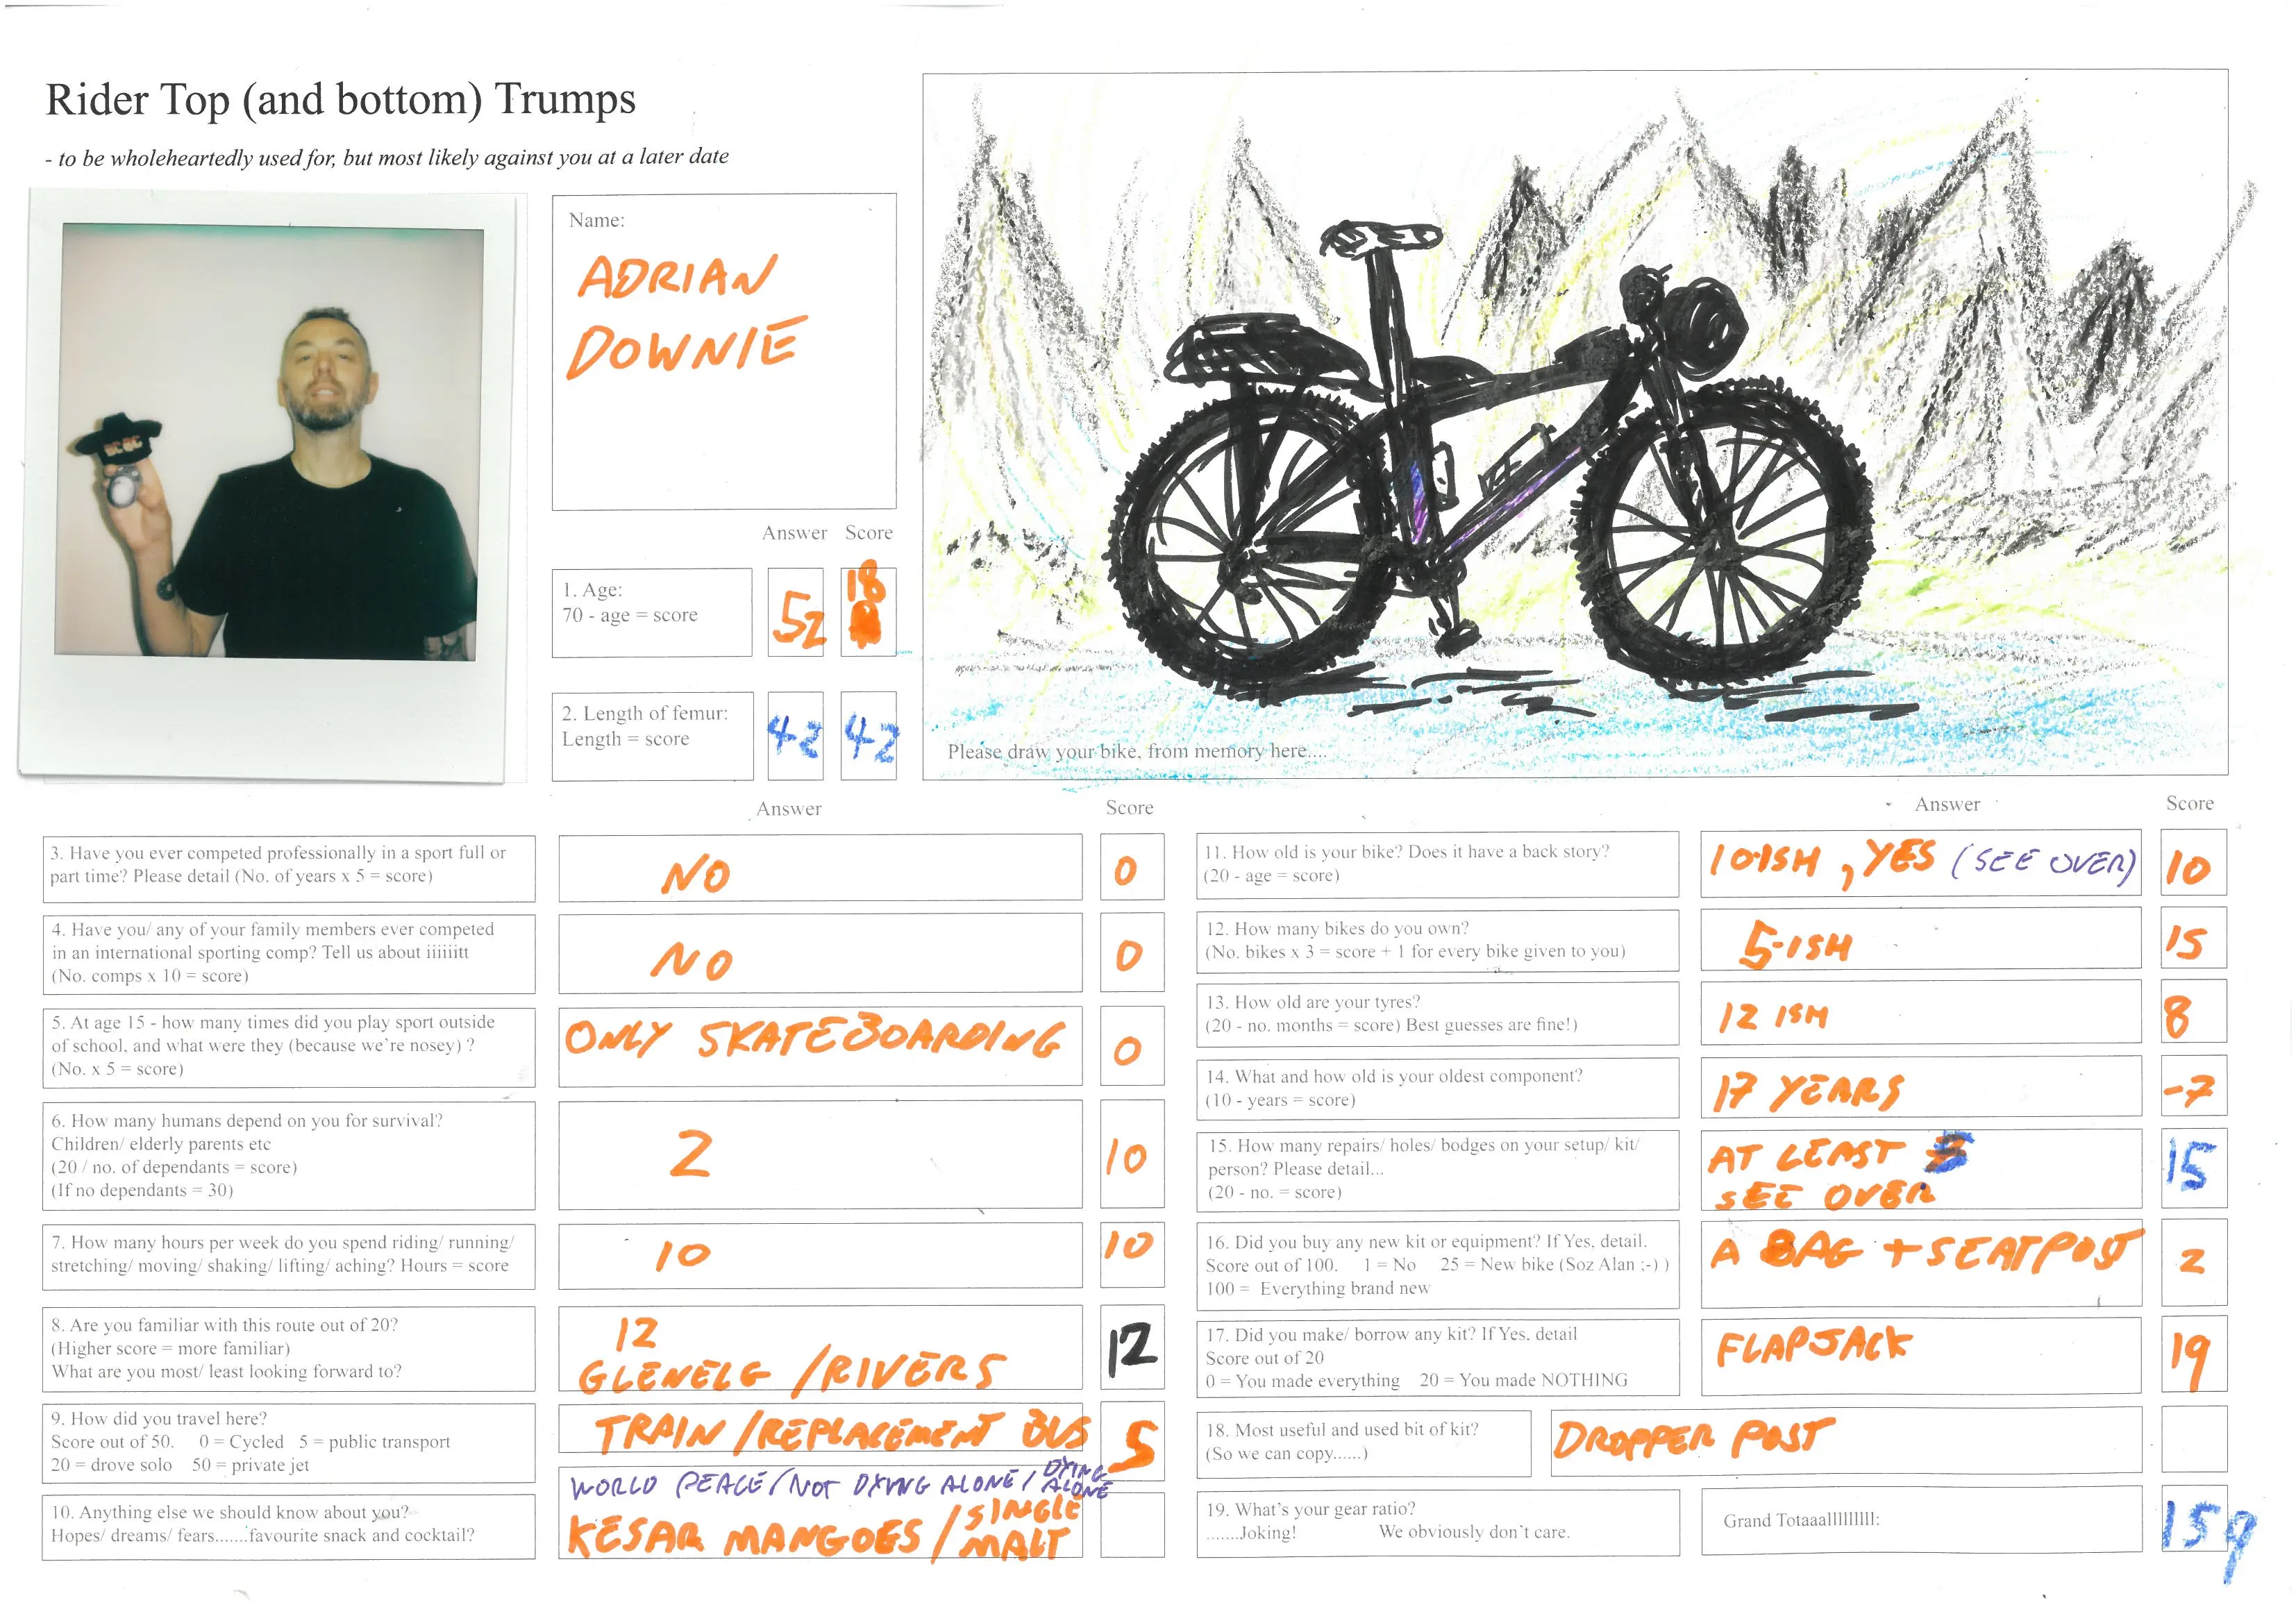 Rider Top (and bottom) Trumps
- to be wholeheartedly used for, but most likely against you at a later date
Name:
ADRIAN
DOWNIE
Answer Score
1. Age:
70 - age = score
52 18
2. Length of femur:
Length = score
42 42
Please draw your bike, from memory here....
Answer Score
3. Have you ever competed professionally in a sport full or
part time? Please detail (No. of years x 5 = score)
NO 0
4. Have you/ any of your family members ever competed
in an international sporting comp? Tell us about iiiiiitt
(No. comps x 10 = score)
NO 0
5. At age 15 - how many times did you play sport outside
of school, and what were they (because we're nosey) ?
(No. x 5 = score)
ONLY SKATEBOARDING 0
6. How many humans depend on you for survival?
Children/ elderly parents etc
(20 / no. of dependants = score)
(If no dependants = 30)
2 10
7. How many hours per week do you spend riding/ running/
stretching/ moving/ shaking/ lifting/ aching? Hours = score
10 10
8. Are you familiar with this route out of 20?
(Higher score = more familiar)
What are you most/ least looking forward to?
12
GLENELG / RIVERS
12
9. How did you travel here?
Score out of 50. 0 = Cycled 5 = public transport
20 = drove solo 50 = private jet
TRAIN / REPLACEMENT BUS 5
10. Anything else we should know about you?
Hopes/ dreams/ fears.......favourite snack and cocktail?
WORLD PEACE / NOT DYING ALONE / DYING ALONE
KESAR MANGOES / SINGLE MALT
Answer Score
11. How old is your bike? Does it have a back story?
(20 - age = score)
10-ISH , YES (SEE OVER) 10
12. How many bikes do you own?
(No. bikes x 3 = score + 1 for every bike given to you)
5-ISH 15
13. How old are your tyres?
(20 - no. months = score) Best guesses are fine!)
12 ISH 8
14. What and how old is your oldest component?
(10 - years = score)
17 YEARS -7
15. How many repairs/ holes/ bodges on your setup/ kit/
person? Please detail...
(20 - no. = score)
AT LEAST
SEE OVER
15
16. Did you buy any new kit or equipment? If Yes, detail.
Score out of 100. 1 = No 25 = New bike (Soz Alan ;-) )
100 = Everything brand new
A BAG + SEATPOST 2
17. Did you make/ borrow any kit? If Yes, detail
Score out of 20
0 = You made everything 20 = You made NOTHING
FLAPJACK 19
18. Most useful and used bit of kit?
(So we can copy......)
DROPPER POST
19. What's your gear ratio?
.......Joking! We obviously don't care.
Grand Totaaallllllllll:
159